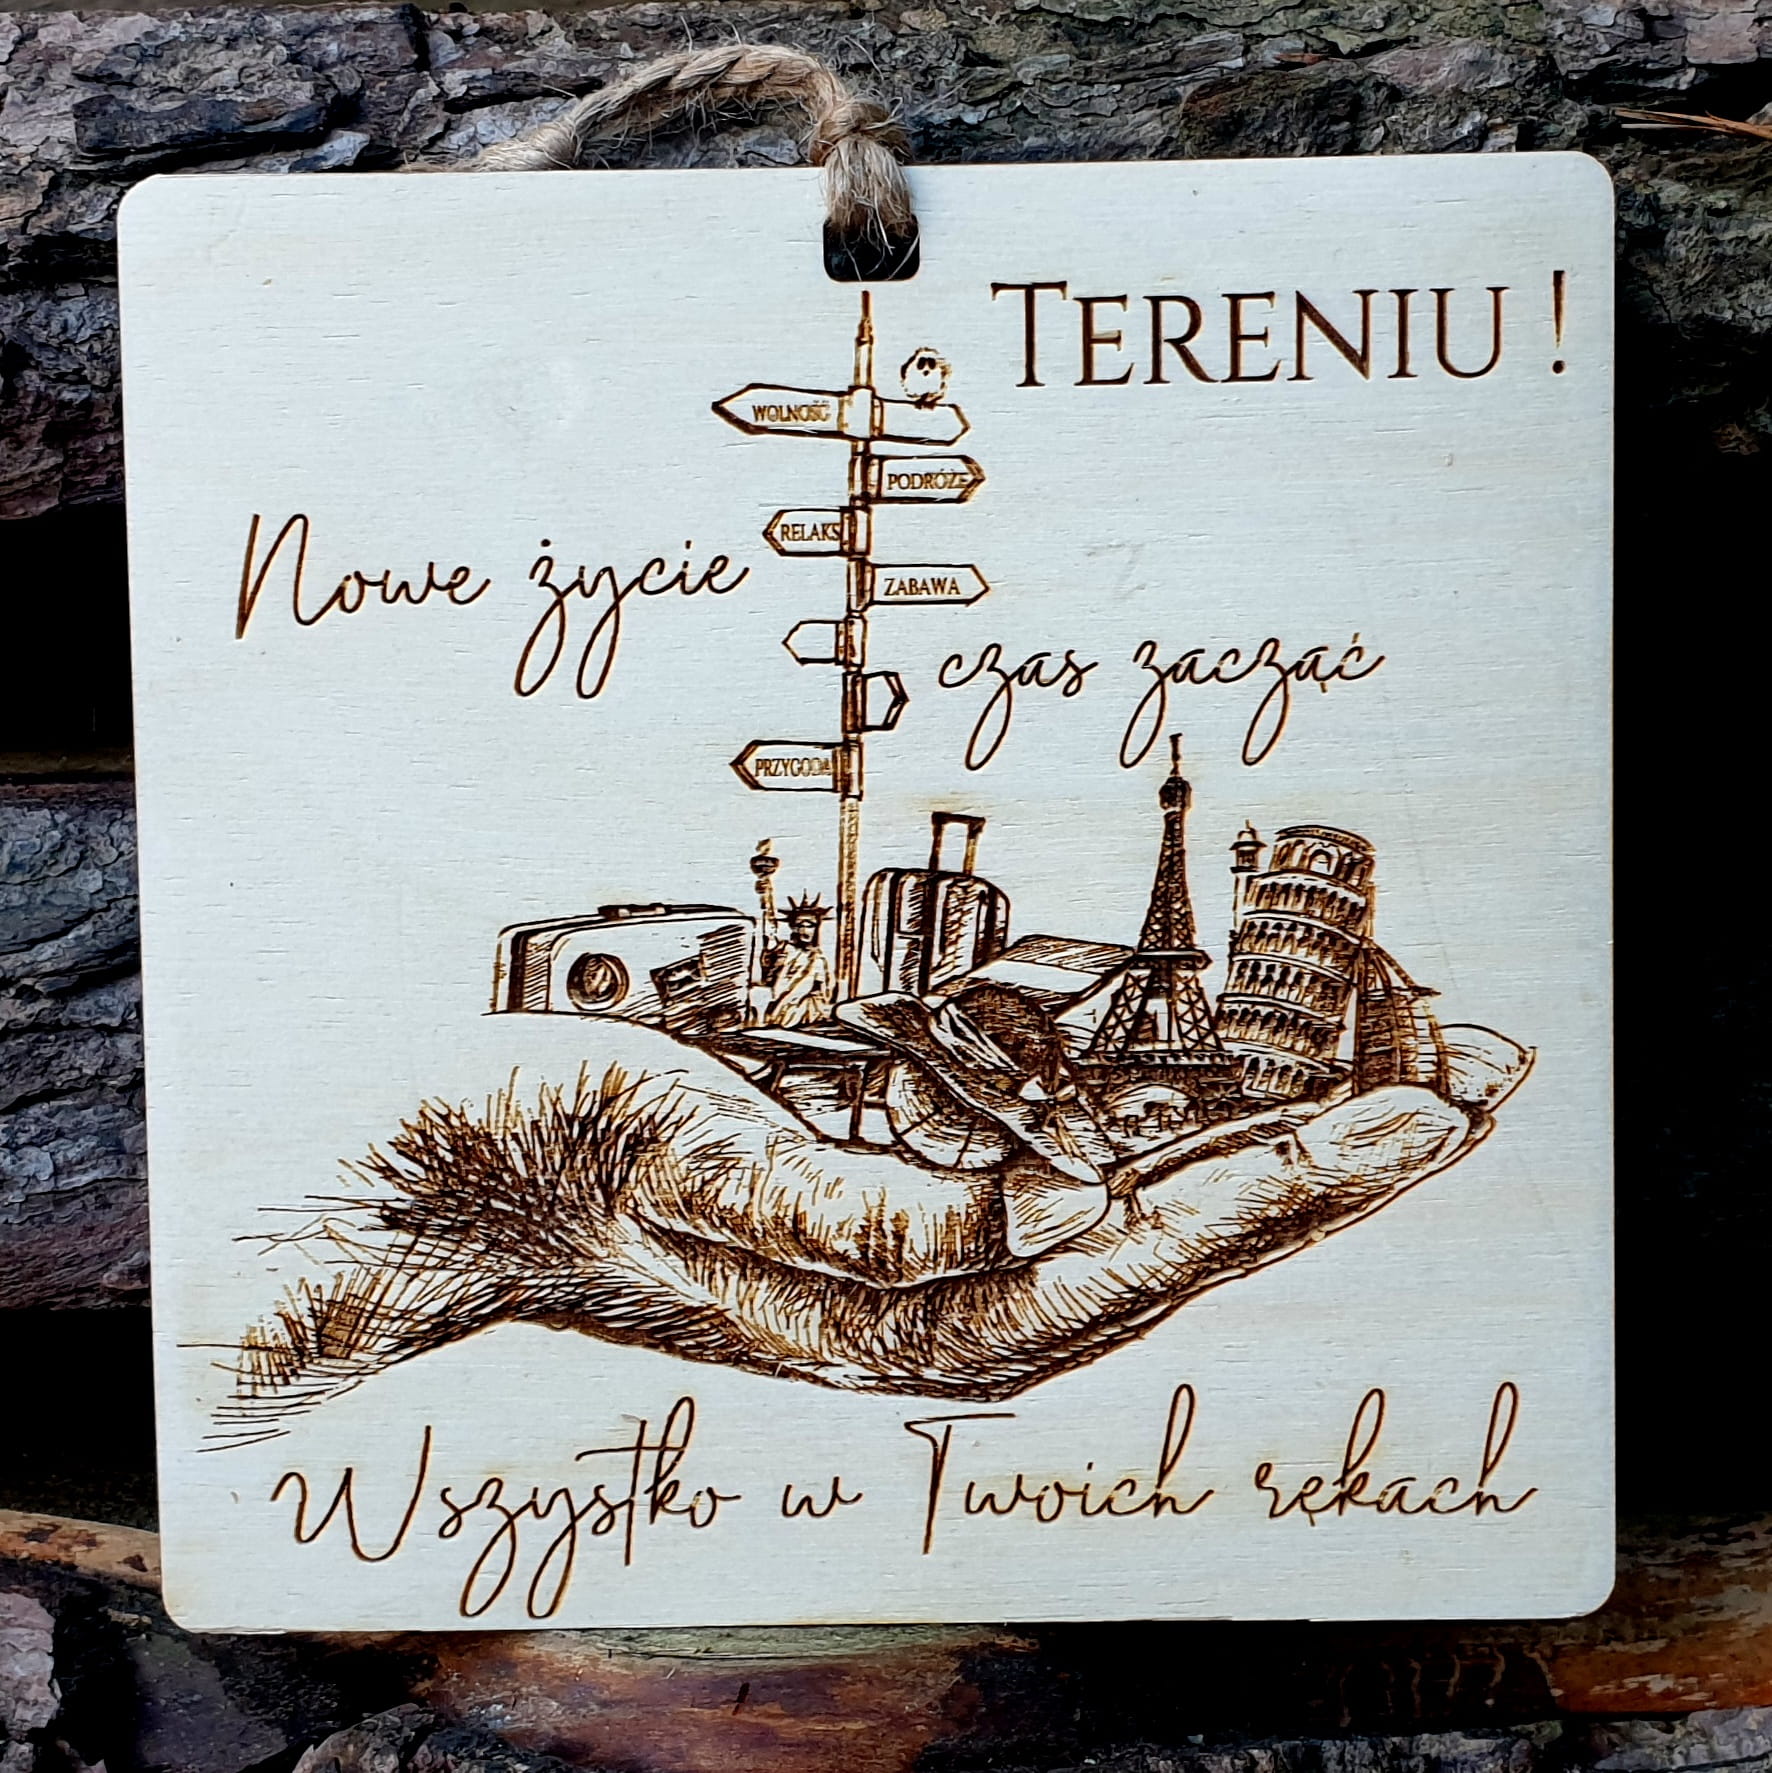 TERENIU !
WOLNOŚĆ
PODRÓŻE
RELAKS
Nowe życie
ZABAWA
czas zacząć
PRZYGODA
Wszystko w Twoich rękach